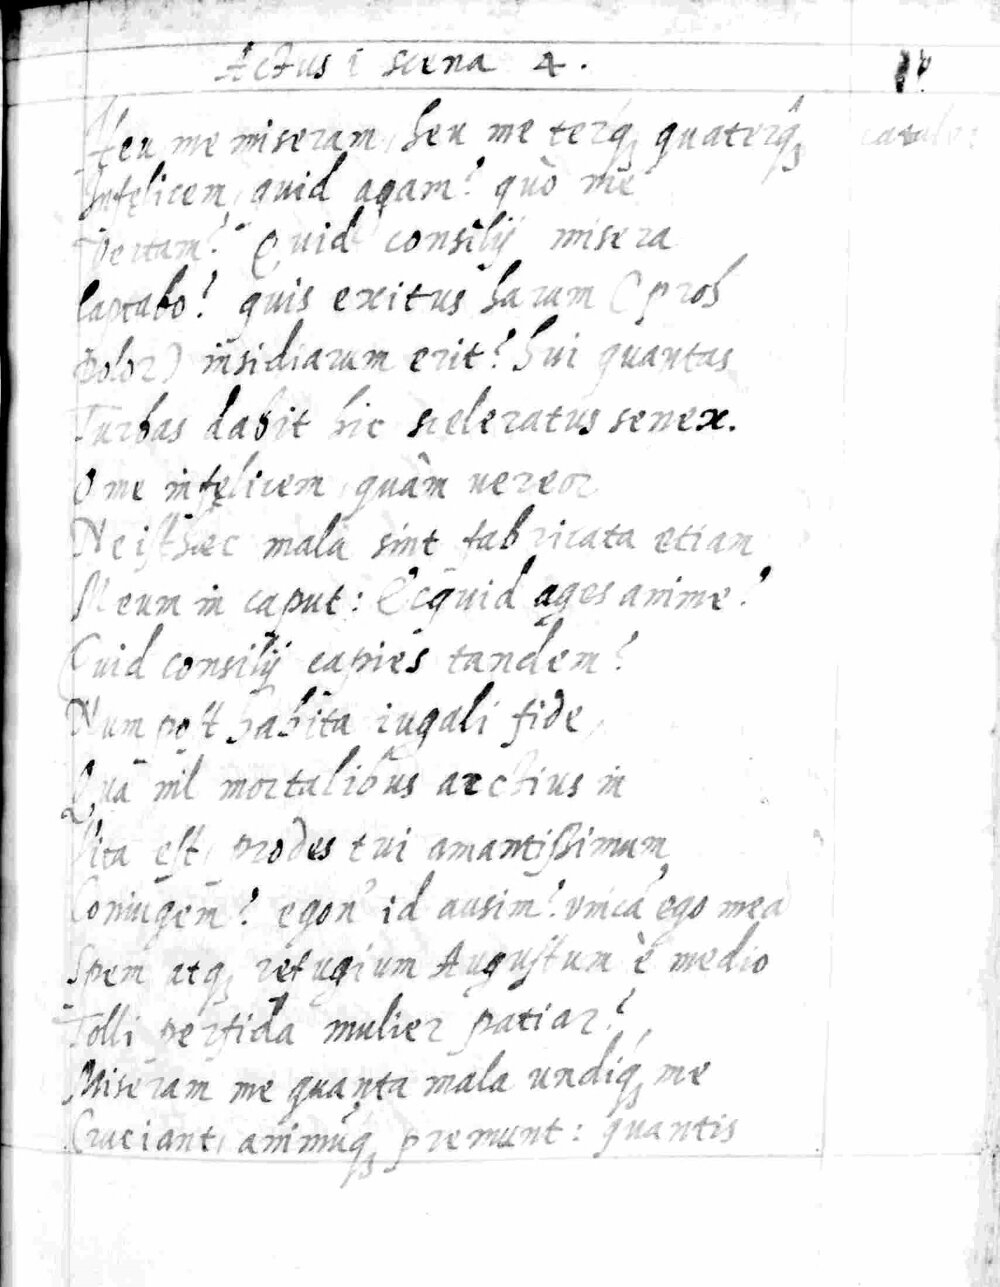 Actus i scena 4.
Heu me miseram, heu me terq́ꝫ quaterq́ꝫ
Infęlicem, quid agam? quò me
Vertam? Quid consilij misera
Captabo? quis exitus harum (proh
Dolor) insidiarum erit? hui quantas
Turbas dabit hic sceleratus senex.
O me infęlicem, quâm uereor
Ne isthæc mala sint fabricata etiam
Meum in caput: Ecquid ages anime?
Quid consilij capies tandem?
Num posthabita iugali fide,
Quâ nil mortalibus arctius in
Vita est, prodes tui amantißimum
Coniugem? egon' id ausim? vnicã ego meã
Spem atqꝫ refugium Augustum è medio
Tolli perfida mulier patiar?
Miseram me quanta mala undiq́ꝫ me
Cruciant, animũq́ꝫ premunt: quantis